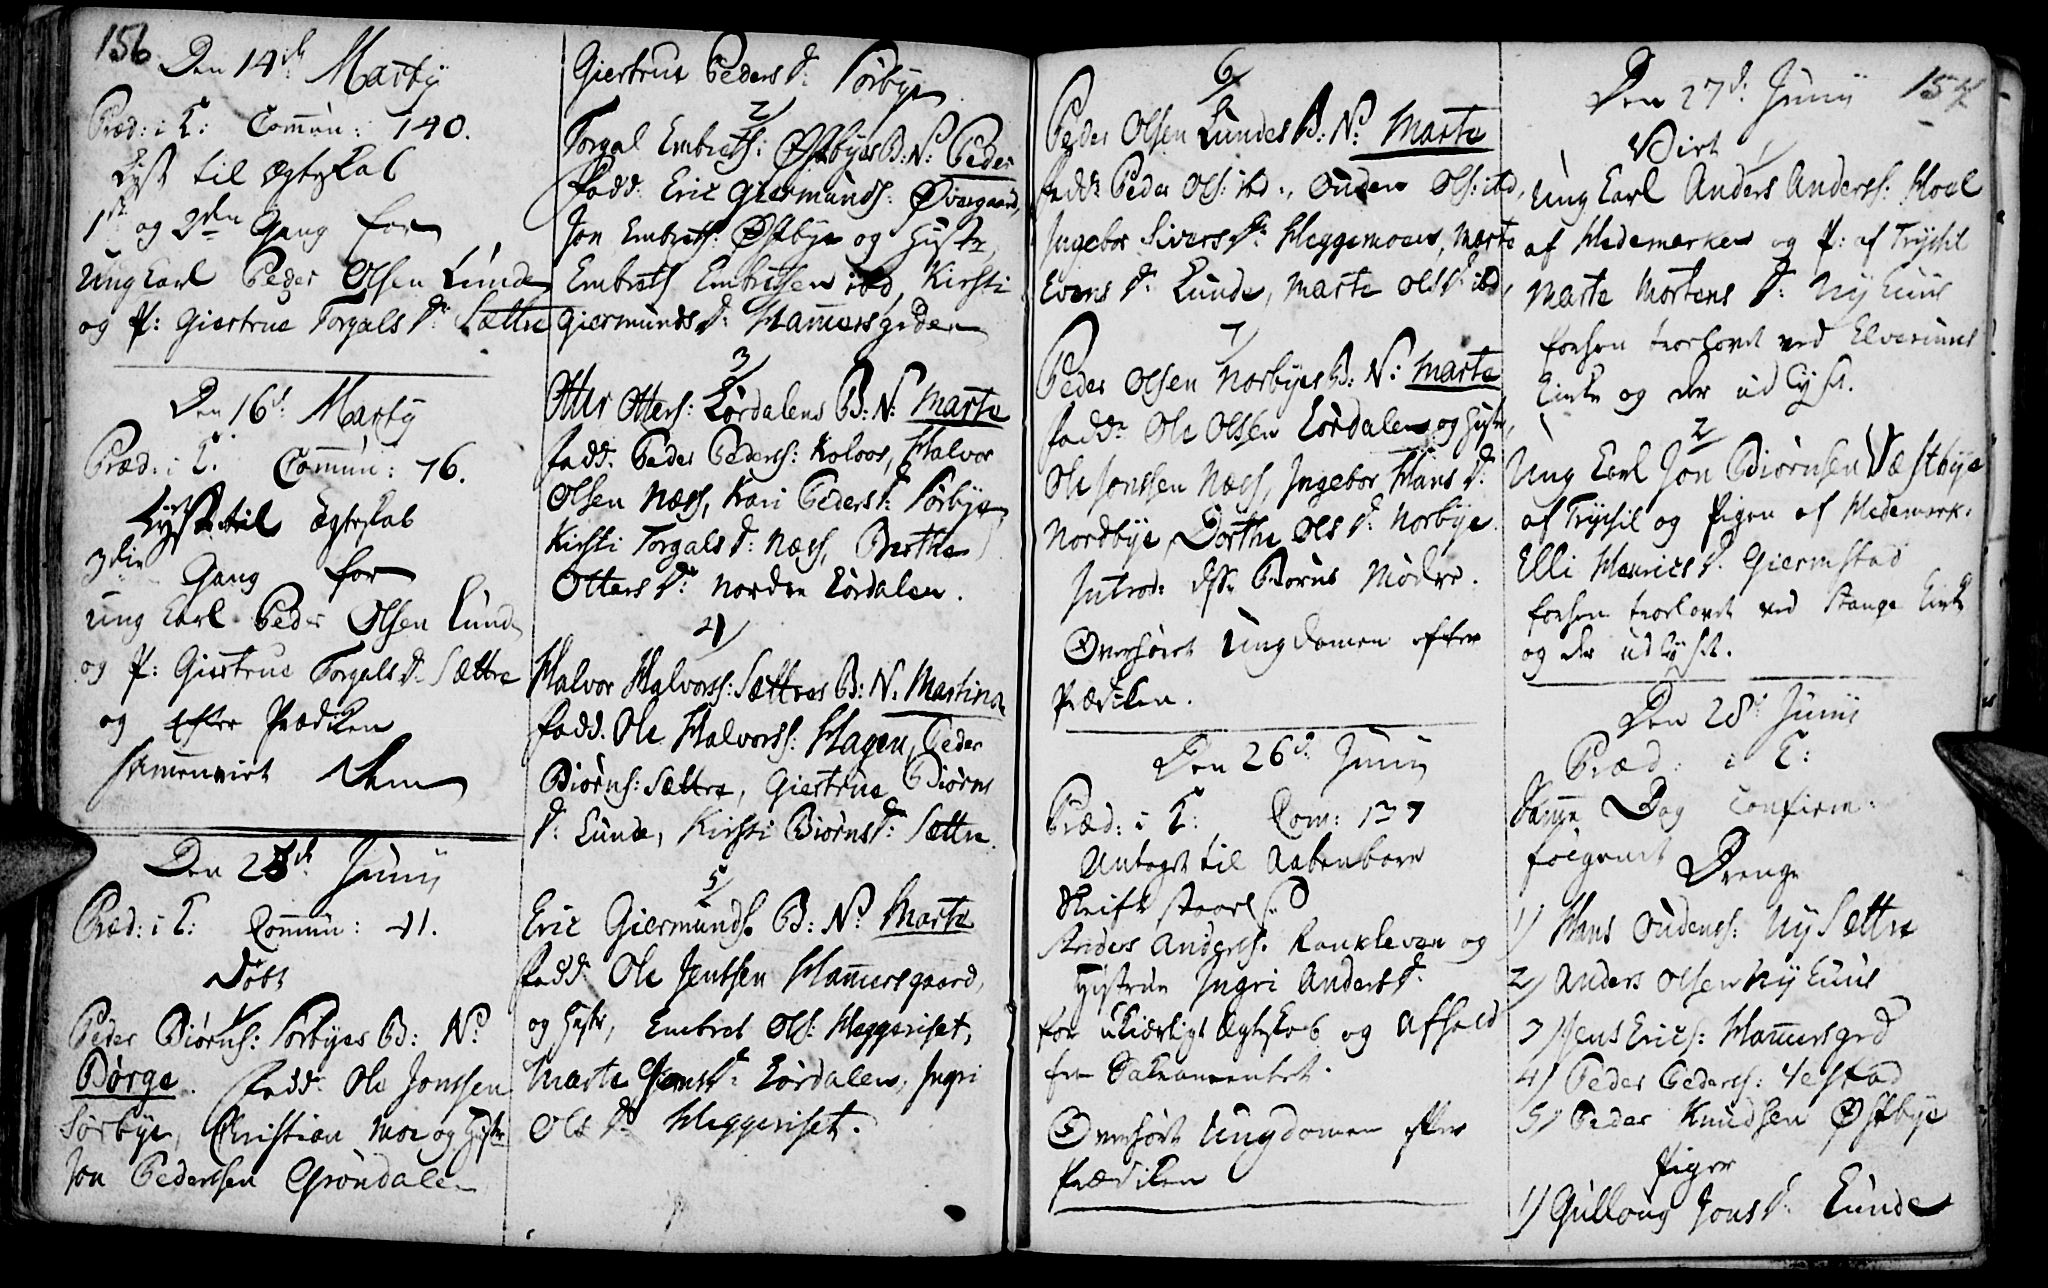 156
Den 14de Martij
Præd: i T: Com̄un: 140.
Lyst til Ægteskab
1ste og 2den Gang for
Ung Carl Peder Olsen Lunde
og P: Giertrue Torgals Dr Sættre
Den 16de Martij
Præd: i T: Com̄un: 76.
Lyst til Ægteskab
3die Gang for
Ung Carl Peder Olsen Lunde
og P: Giertrue Torgals D. Sættre
og efter Prædiken
sammenviet dem
Den 25de Junij
Præd: i T: Com̄un: 41.
Døbt
1/
Peder Biørns: Sørbyes B: N:
Børge. Fadd: Ole Jonssen
Sørbye, Christian Moe og Hustr
Jon Pederssen Grøndalen
Giertrue Peders D: Sørbye
2/
Torgal Embrets: Østbyes B: N: Peder
Fadd: Eric Giermunds: Øvergaard,
Jon Embrets: Østbye og Hustr,
Embret Embretsen ibd, Kirsti
Giermunds D: Ham̄ersgrden
3/
Otter Otters: Lørdalens B: N: Marte
fadd: Peder Peders: Kolos, Halvor
Olsen Næss, Kari Peders D: Sørbye
Kirsti Torgals D: Næss, Berthe
Otters Dr Nordre Lørdalen.
4/
Halvor Halvors: Sættres B: N: Martina
fadd. Ole Halvors: Hagen, Peder
Biørns: Sættre, Giertrue Biørns
D: Lunde, Kirsti Biørns D: Sættre.
5/
Eric Giermunds. B: N: Marte
fadd: Ole Jenssen Ham̄ersgaard,
og Hustr, Embret Ols: Heggeriset,
Marte Jens D: Lørdalen, Ingri
Ols D: Heggeriset.
6/
Peder Olsen Lundes B: N: Marte
fadd: Peder Ols: ibd:, Ouden Ols: ibd,
Ingebor Sivers Dr Heggemoen, Marte
Evens D: Lunde, Marte Ols D: ibd,
7/
Peder Olsen Norbyes B: N: Marte
fadd: Ole Olsen Lørdalen og Hustr,
Ole Jonssen Næss, Ingebor Hans D:
Nordbye, Dorthe Ols D: Norbye.
Introd: diss: Børns Mødre.
Overhørt Ungdomen efter
Prædiken.
Den 26de Junij
Præd: i T: Com: 137
Antaget til Aabenbare
Skrifte
Anders Anders: Ronkleven og
Hustrue Ingri Anders D:
for ukierligt Ægteskab og Afhold
fra Sakramentet.
Overhørt Ungdomen efter
Prædiken
157
Den 27de Junij
Viet
1/
Ung Carl Anders Anders: Hoel
af Hedemarken og P: af Trysil
Marte Mortens D: Nyhuus
forhen trolovet ved Elverums
Kirke og der udlyst.
2/
Ung Carl Jon Biørnsen Væstbye
af Trysil og Pigen af Hedemark:
Elli Henrics D: Giermstad
forhen trolovet ved Stange Kirk
og der udlyst.
Den 28de Junij
Præd: i T:
Sam̄e Dag Confirm:
følgende
Drenge
1) Hans Oudens: Nysættre
2) Anders Olsen Nyhuus
3) Jens Erics: Ham̄ersgrd
4) Peder Peders: Jestad
5) Peder Knudsen Østbye
Piger
1) Gulloug Jons D: Lunde